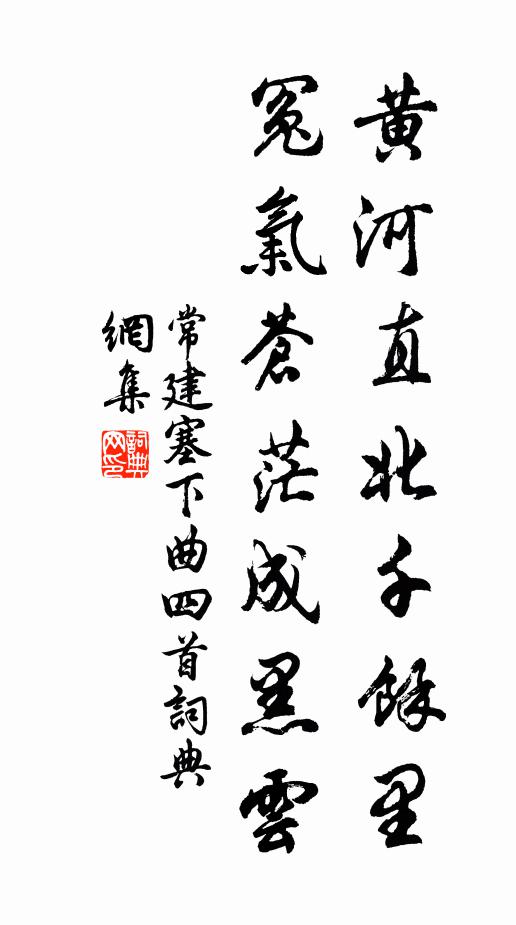 黃河直北千餘里
冤氣蒼茫成黑雲
常建塞下曲四首詞典
網集
詞典網印